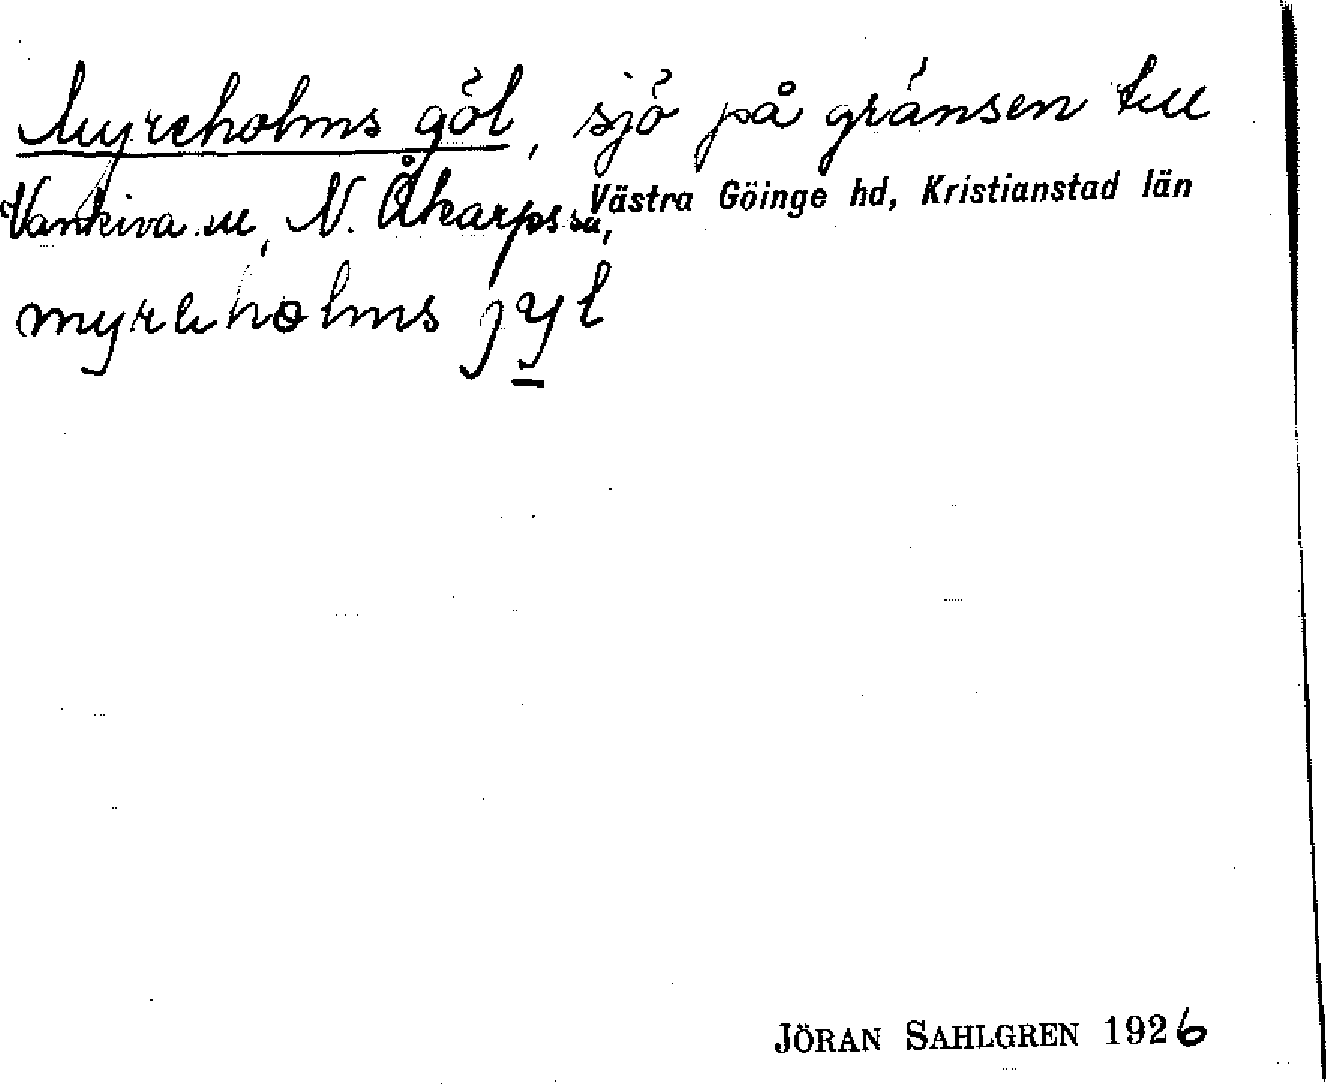 Myreholms göl, sjö på gränsen till
Vankiva sn, N. Åkarps sn, Västra Göinge hd, Kristianstad län
myrəhɵlms jyl
JÖRAN SAHLGREN 1926